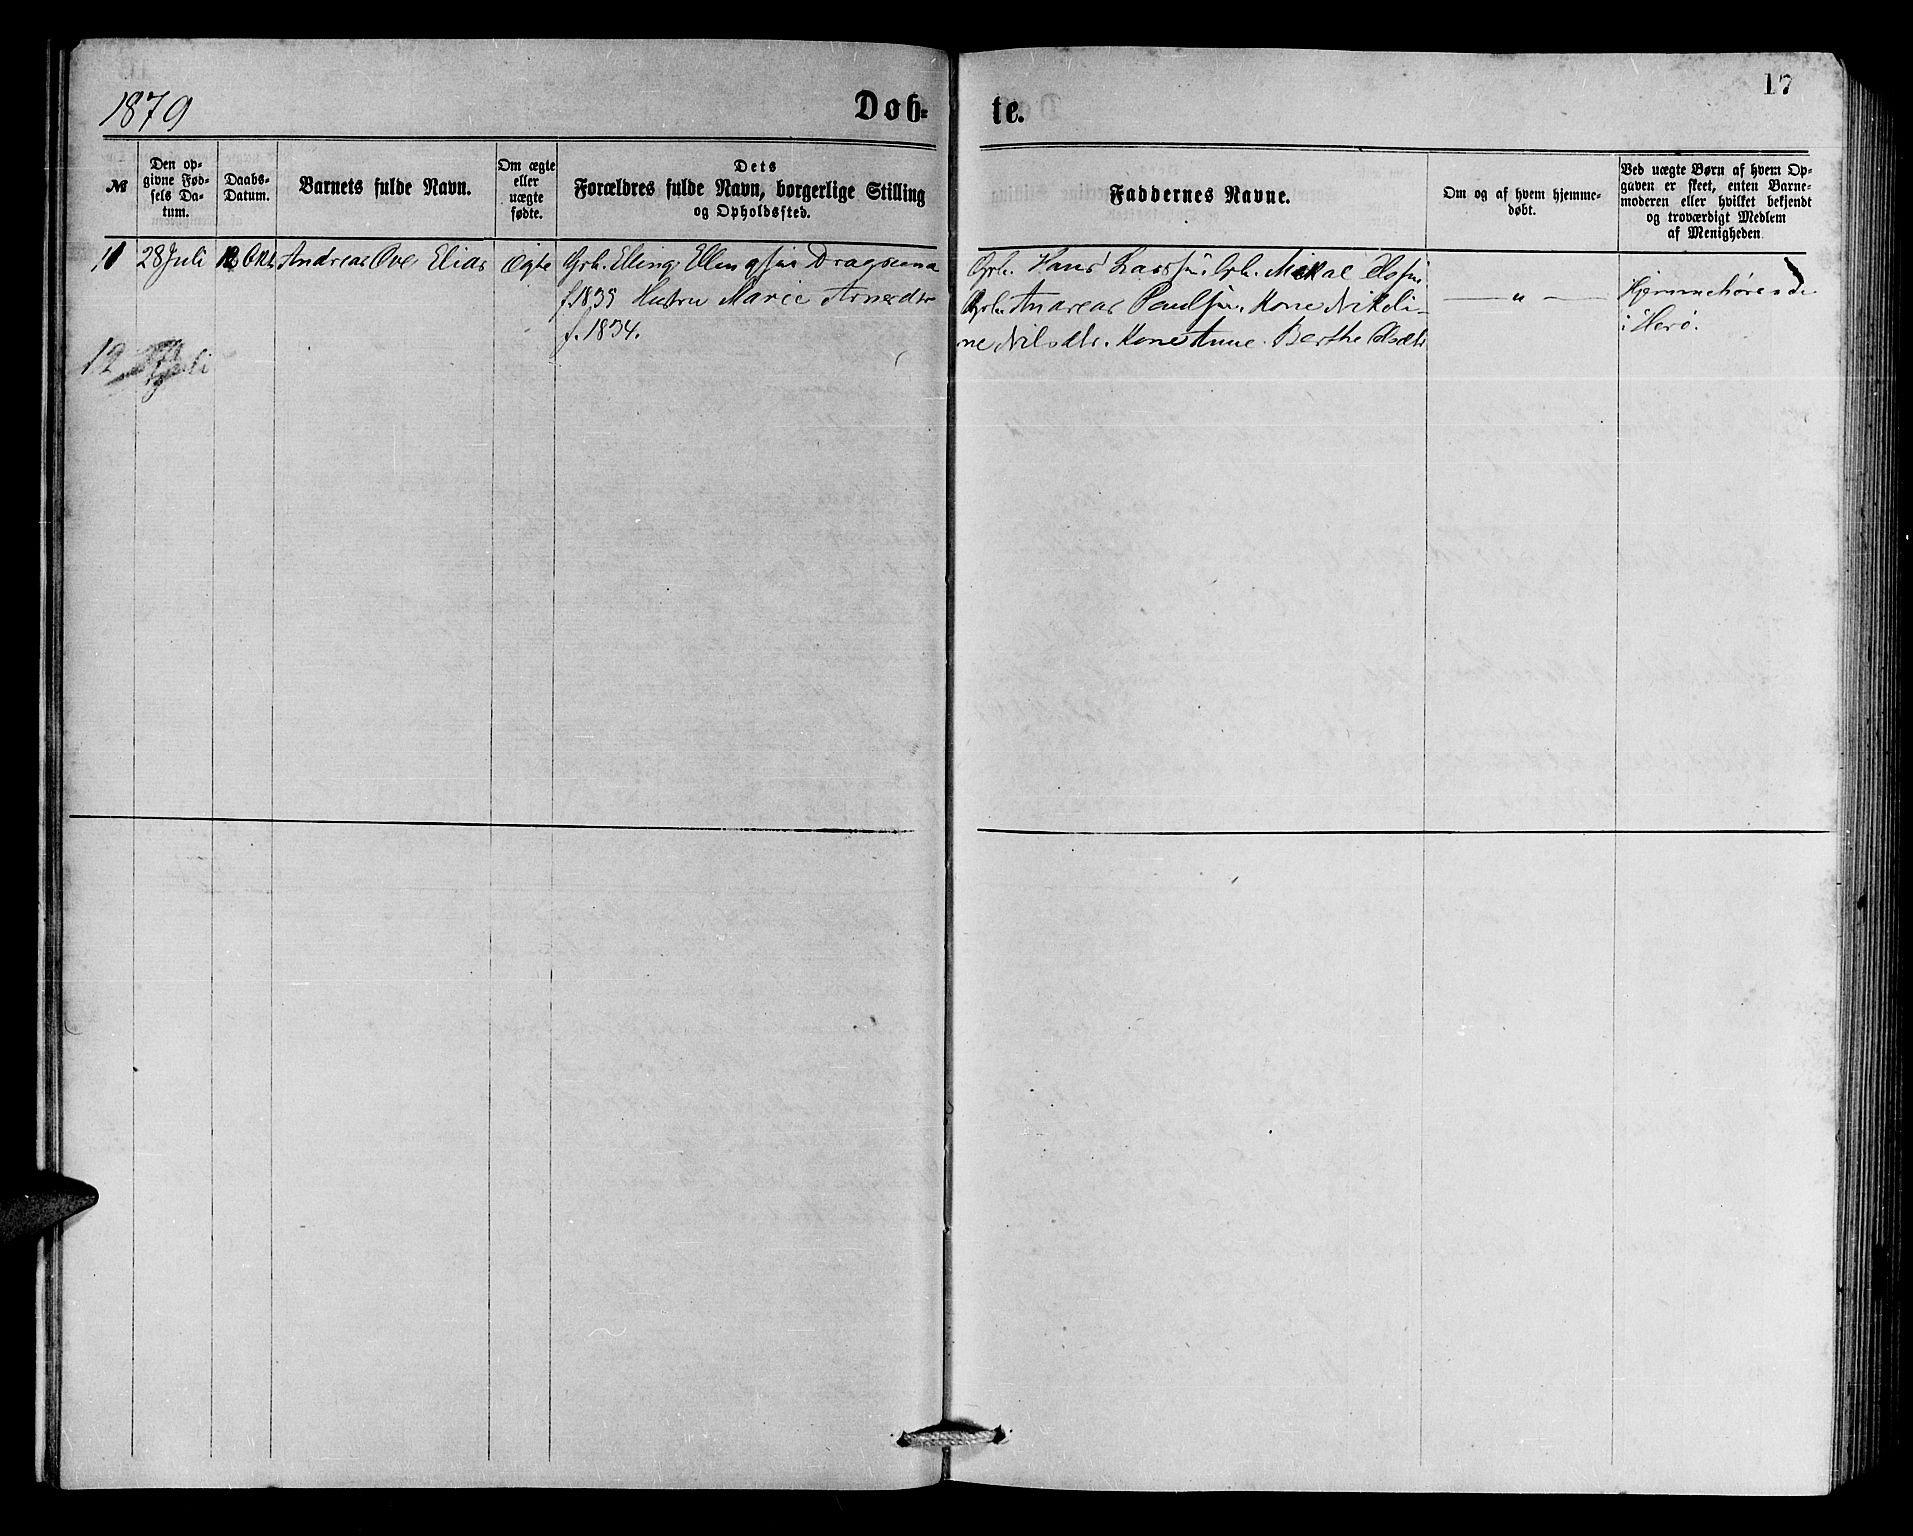 17
1879
Døb-
te.
№
Den op-
givne Fød-
sels Da-
tum.
Daabs-
Datum.
Barnets fulde Navn.
Om ægte
eller
uægte
fødte.
Dets
Forældres fulde Navn, borgerlige Stilling
og Opholdssted.
Faddernes Navne.
Om og af hvem hjemme-
døbt.
Ved uægte Børn af hvem Op-
gaven er skeet, enten Barne-
moderen eller hvilket bekjendt
og troværdigt Medlem
af Menigheden.
11 28 Juli 12 Okt. Andreas Ove Elias Ægte Grb. Elling Ellingsen Dragsund
f. 1835 Hustru Marie Arnedtr
f. 1834.
Grb. Hans Larssen. Grb. Mikal Olssen
Grb. Andreas Paulsen. Kone Nikoli-
ne Nilsdtr. Kone Anne Berthe Olsdtr
— " —
Hjemmehørende
i Herø.
12 Juli